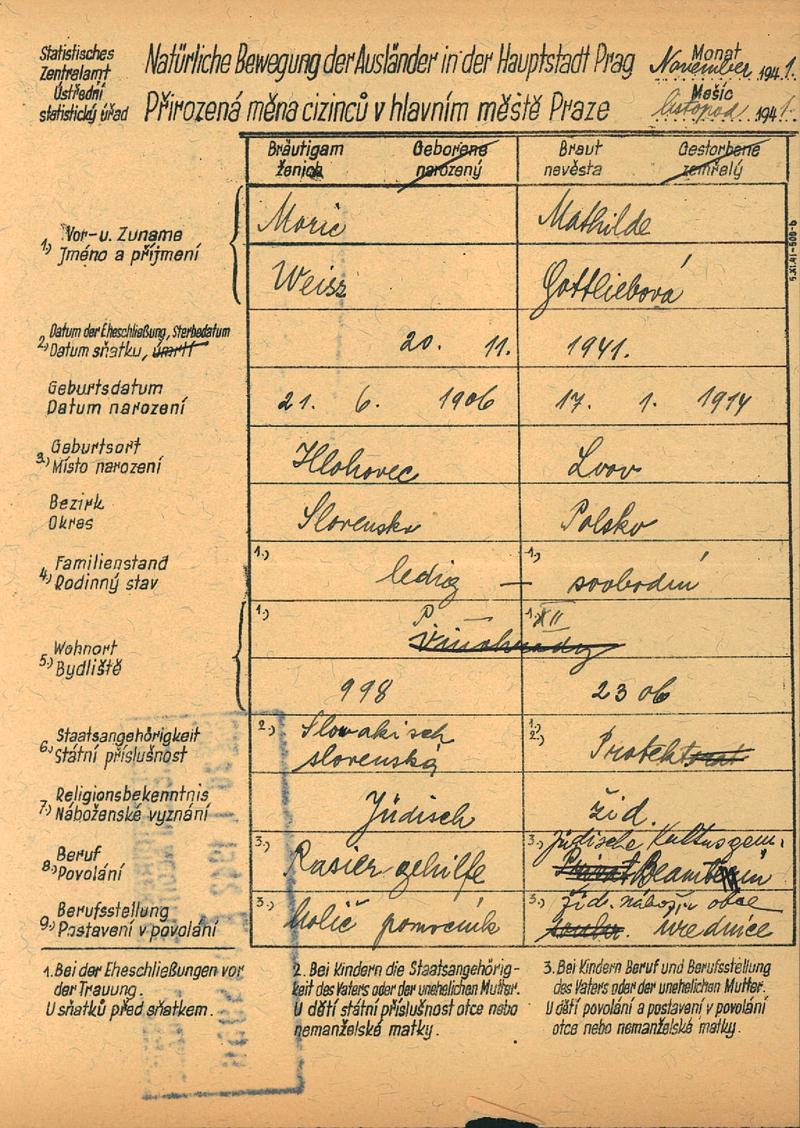 Statistisches
Zentralamt
Ústřední
statistický úřad
Natürliche Bewegung der Ausländer in der Hauptstadt Prag
Přirozená měna cizinců v hlavním městě Praze
Monat
November 1941.
Měsíc
listopad 1941.
Bräutigam Geborene Braut Gestorbene
ženich narozený nevěsta zemřelý
1.) Vor- u. Zuname
Jméno a příjmení
Moric Mathilde
Weisz Gottliebová
2.) Datum der Eheschließung, Sterbedatum
Datum sňatku, úmrtí
20. 11. 1941.
Geburtsdatum
Datum narození
21. 6. 1906 17. 1. 1914
3.) Geburtsort
Místo narození
Hlohovec Lvov
Bezirk
Okres
Slovensko Polsko
4.) Familienstand
Rodinný stav
1.) ledig — 1.) svobodní
5.) Wohnort
Bydliště
1.) P. 1.) XII
Vinohrady
998 2306
6.) Staatsangehörigkeit
Státní příslušnost
2.) Slowakisch 1.) 2.) Protektorat
slovenská
7.) Religionsbekenntnis
Náboženské vyznání
Jüdisch žid.
8.) Beruf
Povolání
3.) Rasier gehilfe 3.) jüdische Kultusgem.
Privat Beamterin
9.) Berufsstellung
Postavení v povolání
3.) holič pomocník 3.) žid. nábož. obce
úřednice
1. Bei der Eheschließungen vor
der Trauung.
U sňatků před sňatkem.
2. Bei Kindern die Staatsangehörig-
keit des Vaters oder der unehelichen Mutter.
U dětí státní příslušnost otce nebo
nemanželské matky.
3. Bei Kindern Beruf und Berufsstellung
des Vaters oder der unehelichen Mutter.
U dětí povolání a postavení v povolání
otce nebo nemanželské matky.